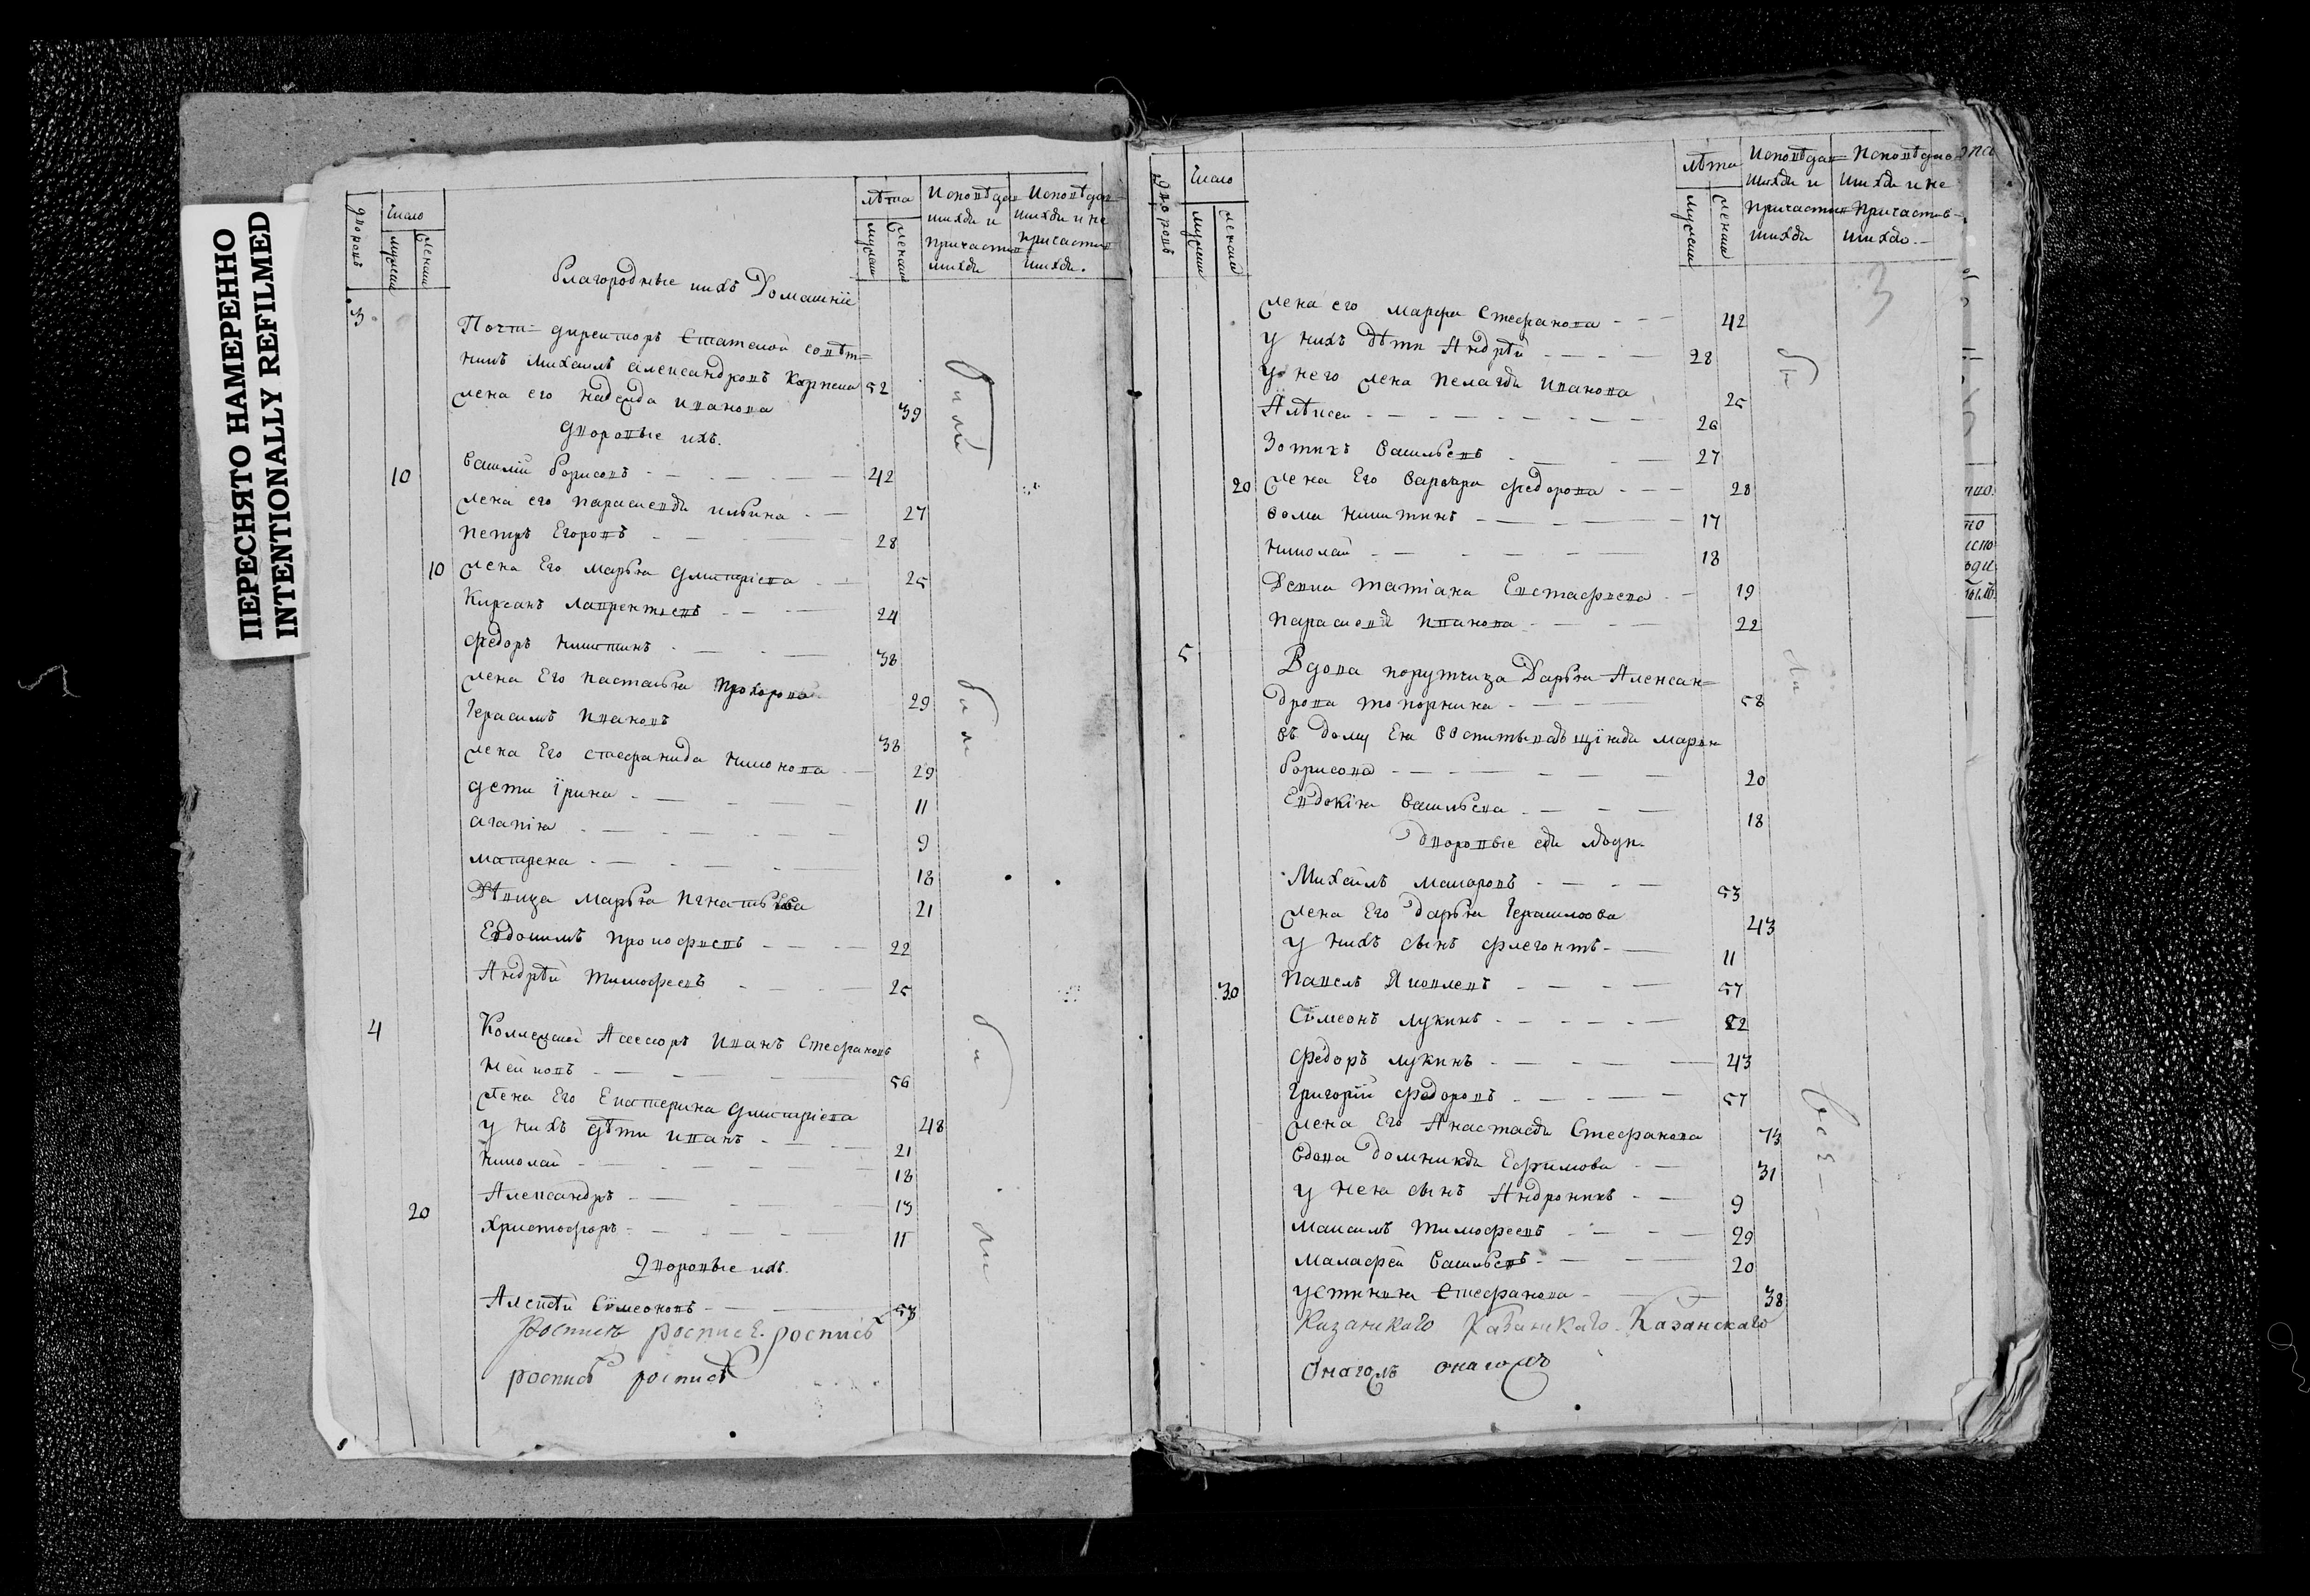 ПЕРЕСНЯТО НАМЕРЕННО
INTENTIONALLY REFILMED
дворовъ
Число
мужеска
женска
лѣта
мужеска
женска
Исповѣдав=
шихся и
причастив
шихся
Исповѣдав=
шихся и не
причастив
шихся.
Благородные и ихъ Домашнiе
3
Почт= директоръ Статской совѣт=
никъ Михаилъ Александровъ 52
жена его надежда иванова 39
дворовые ихъ.
10 василiй борисовъ 42
жена его парасковья ильина 27
петръ Егоровъ 28
10 жена Его марья дмитрiева 25
Кирсанъ лаврентьевъ 24
федоръ никитинъ 38
жена Его настасья прохорова 29
Герасимъ ивановъ 38
жена Его стефанида никонова 29
дети iрина 11
агапiя 9
матрена 18
Дѣвица марья игнатьева 21
Евдокимъ прокофьевъ 22
Андрѣй тимофеевъ 25
4 Коллежской Асессоръ иванъ Стефановъ
56
жена Его Екатерина дмитрiева 48
у нихъ дѣти иванъ 21
николай 18
Александръ 13
Христофоръ 11
20
дворовые ихъ.
Алексѣй Сiмеоновъ 53
роспись роспись. роспись
роспись роспись
были
были
бы
ли
дворовъ
Число
мужеска
женска
лѣта
мужеска
женска
Исповѣдав=
шихся и
причастив=
шихся
Исповѣдав
шихся и не
причастив=
шихся.
3
жена его марфа Стефанова 42
у нихъ дѣти Андрѣй 28
у него жена пелагея иванова 25
Алѣксей 26
Зотикъ васильевъ 27
20 жена Его варвара федорова 28
фома никитинъ 17
николай 18
Девка татiана Евстафьева 19
парасковiя иванова 22
5 Вдова порутчица Дарья Алексан=
дрова топорнина 58
въ дому Ея воспитывающiяся марья
борисова 20
Евдокiя васильева 18
дворовые ея люди.
Михаилъ макаровъ 53
жена Его дарья Герасимова 43
у нихъ сынъ флегонтъ 11
30 павелъ Яковлевъ 57
Сiмеонъ лукинъ 22
федоръ лукинъ 43
григорiй федоровъ 57
жена Его Анастасья Стефанова 73
вдова домникiя Ефимова 31
у нея сынъ Андроникъ 9
максимъ тимофеевъ 29
малафей васильевъ 20
устинья стефанова 38
Казанскаго Казанскаго Казанскаго
онагожъ онагожъ
бы
ли